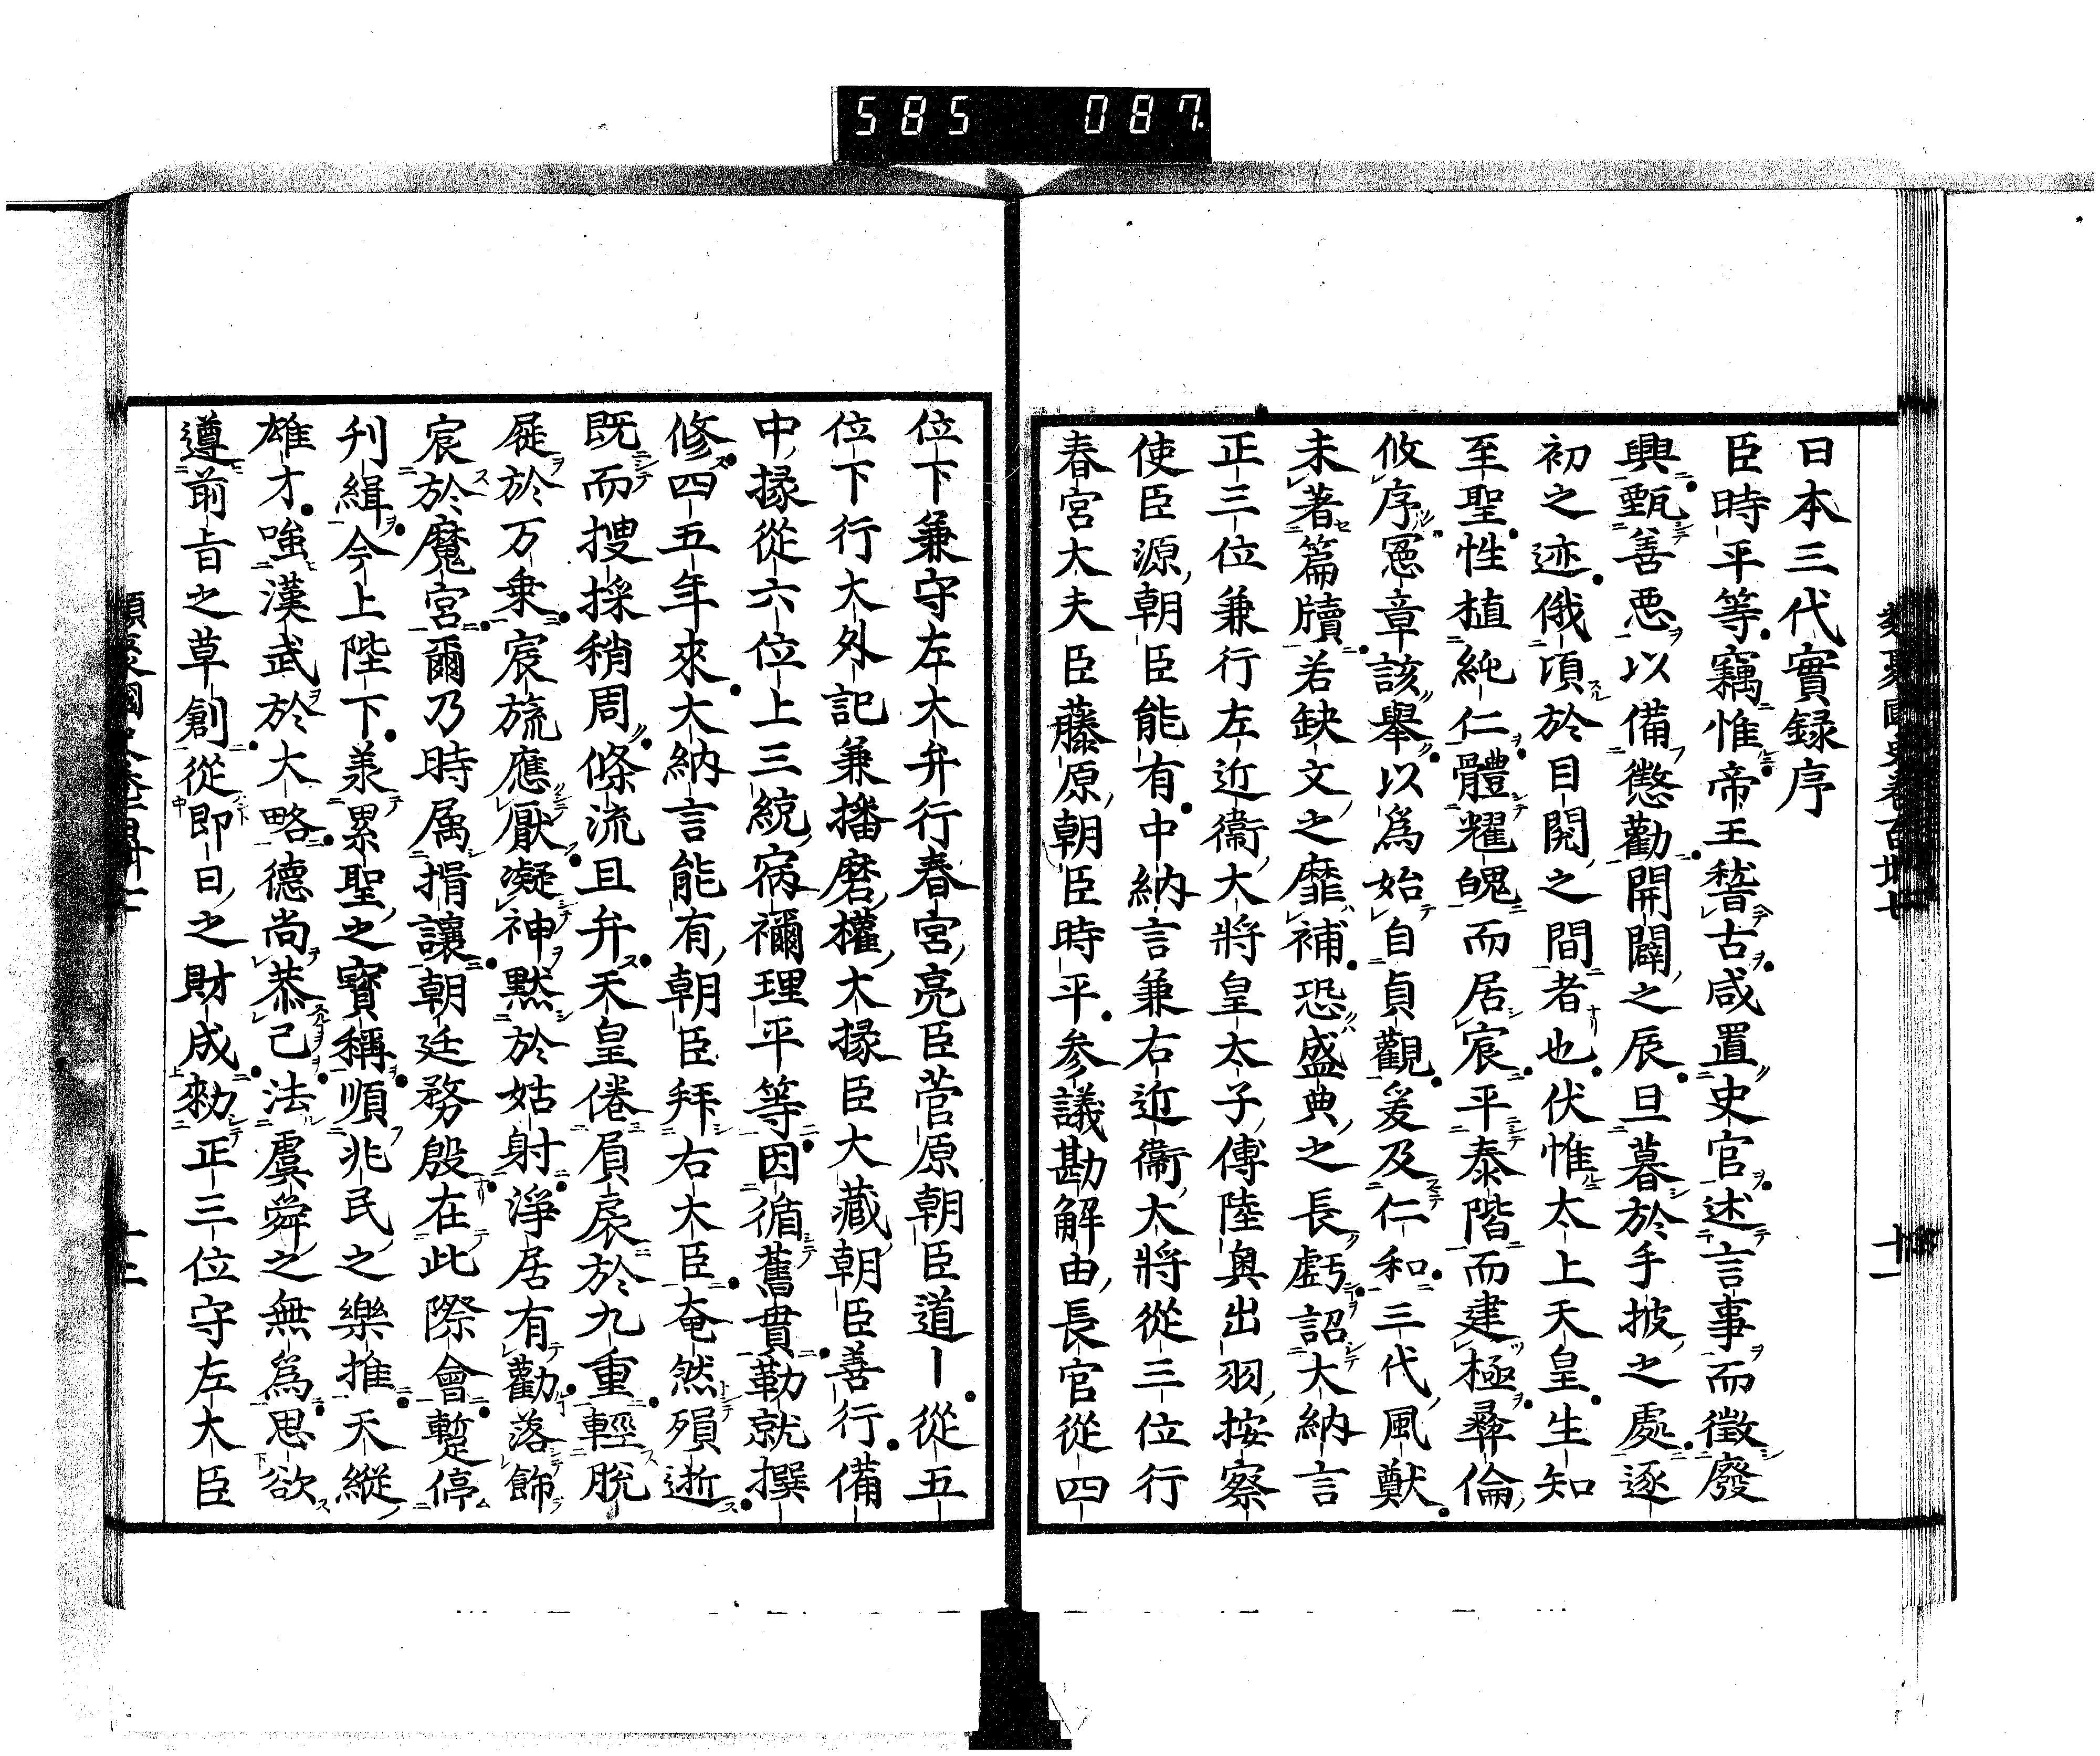 585 087
日本三代實録序
臣時平等竊惟帝王稽古咸置史官述言事而徵廢
興甄善惡以備懲勸開闢之辰旦暮於手披之處逐
初之迹俄頃於目閱之間者也伏惟太上天皇生知
至聖性植純仁體耀魄而居宸平泰階而建極彝倫
攸序憲章該舉以爲始自貞觀爰及仁和三代風猷
未著篇牘若缺文之靡補恐盛典之長虧詔大納言
正三位兼行左近衞大將皇太子傅陸奧出羽按察
使臣源朝臣能有中納言兼右近衞大將從三位行
春宮大夫臣藤原朝臣時平參議勘解由長官從四
位下兼守左大弁行春宮亮臣菅原朝臣道－從五
位下行大外記兼播磨權大掾臣大藏朝臣善行備
中掾從六位上三統宿禰理平等因循舊貫勒就撰
修四五年來大納言能有朝臣拜右大臣奄然殞逝
既而搜採稍周條流且弁天皇倦屓扆於九重輕脫
屣於万乗宸旒應厭凝神默於姑射淨居有勸落飾
宸於魔宮爾乃時属揖讓朝廷務殷在此際會蹔停
刋緝今上陛下羕累聖之寳稱順兆民之樂推天縦
雄才嗤漢武於大略德尚恭己法虞舜之無爲思欲
遵前旨之草創從即日之財成勑正三位守左大臣